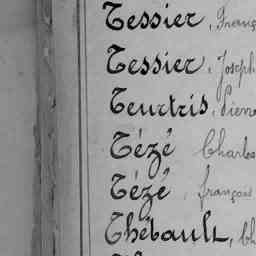 Tessier, Franç
Tessier, Joseph
Teurtris, Pierre
Tézé Charles
Tézé, françois
Thébault, Ch